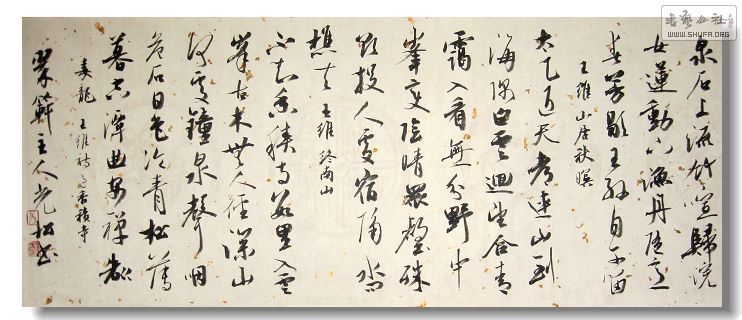 书艺公社
WWW.SHUFA.ORG
泉石上流竹喧歸浣
女蓮動下漁舟隨意
春芳歇王孫自可留
王維山居秋暝
太乙近天都連山到
海隅白雲迴望合青
靄入看無分野中
峯變陰晴眾壑殊
欲投人處宿隔水問
樵夫 王維終南山
不知香積寺數里入雲
峯古木無人徑深山
何處鐘泉聲咽
危石日色冷青松薄
暮空潭曲安禪制
毒龍 王維詩過香積寺
翠主人光松書